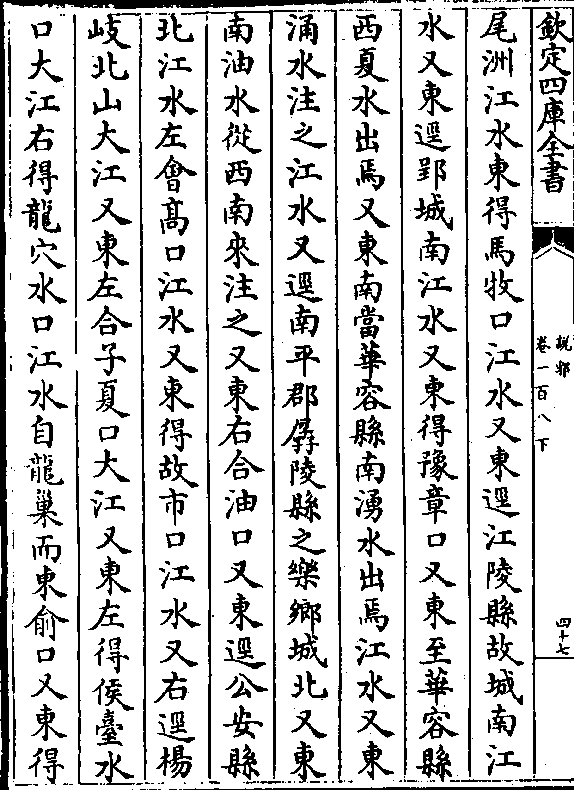 欽定四庫全書
說郛
卷一百八下
四十七
尾洲江水東得馬牧口江水又東逕江陵縣故城南江
水又東逕郢城南江水又東得豫章口又東至華容縣
西夏水出焉又東南當華容縣南湧水出焉江水又東
涌水注之江水又逕南平郡孱陵縣之樂鄉城北又東
南油水從西南來注之又東右合油口又東逕公安縣
北江水左會高口江水又東得故市口江水又右逕楊
岐北山大江又東左合子夏口大江又東左得侯臺水
口大江右得龍穴水口江水自龍巢而東俞口又東得